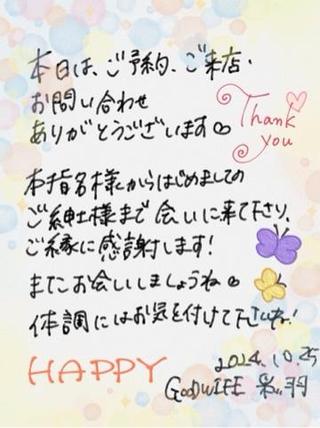 本日は、ご予約、ご来店・
お問い合わせ
ありがとうございます♡
Thank
you
本指名様からはじめましての
ご紳士様まで会いに来て下さり、
ご縁に感謝します!
またお会いしましょうね♡
体調にはお気を付けて下さいね!
HAPPY
2024.10.25
GOODWIFE 彩羽